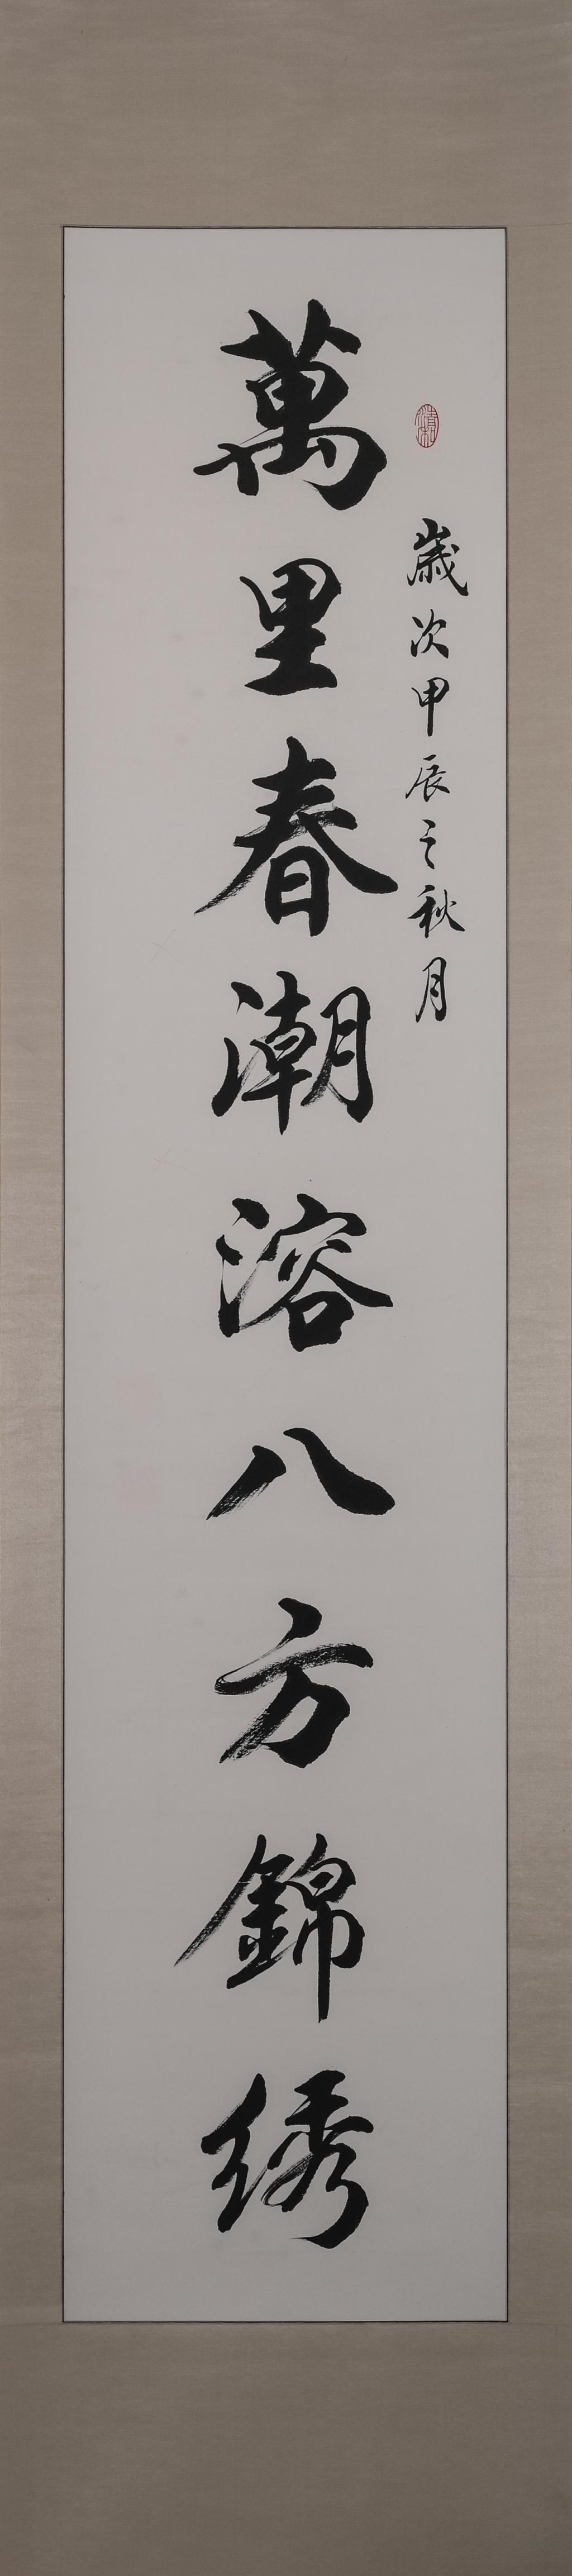 歲次甲辰之秋月
萬里春潮溶八方錦绣